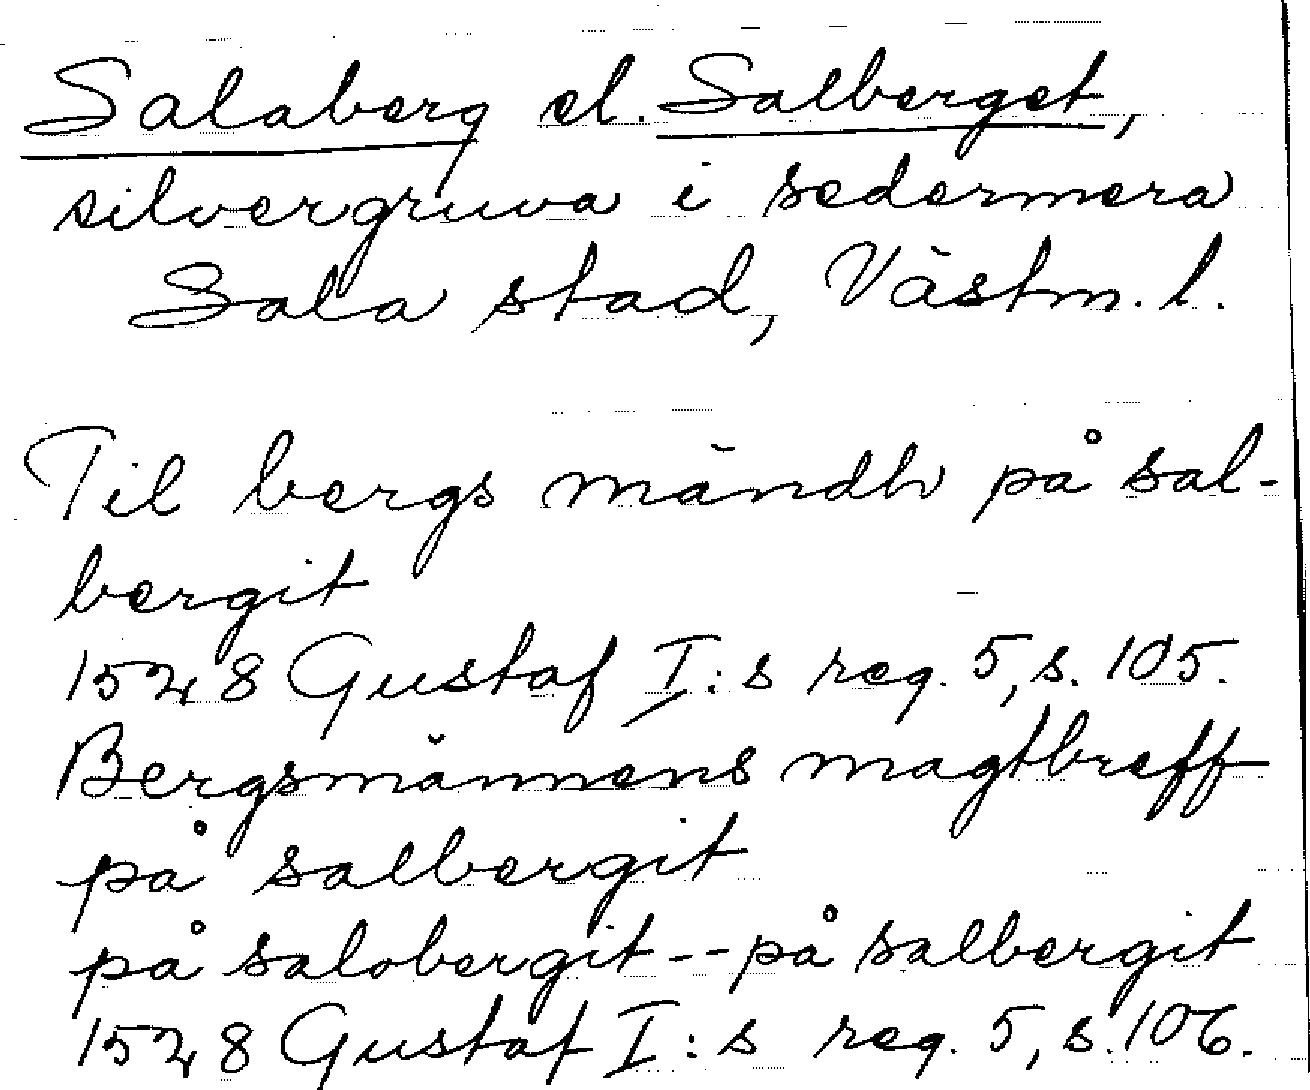 Salaberg el. Salberget,
silvergruva i sedermera
Sala stad, Västm. l.
Til bergs mändh på sal-
bergit
1528 Gustaf I:s reg. 5, s. 105.
Bergsmännens magtbreff
på salbergit
på salobergit -- på salbergit
1528 Gustaf I:s reg. 5, s. 106.